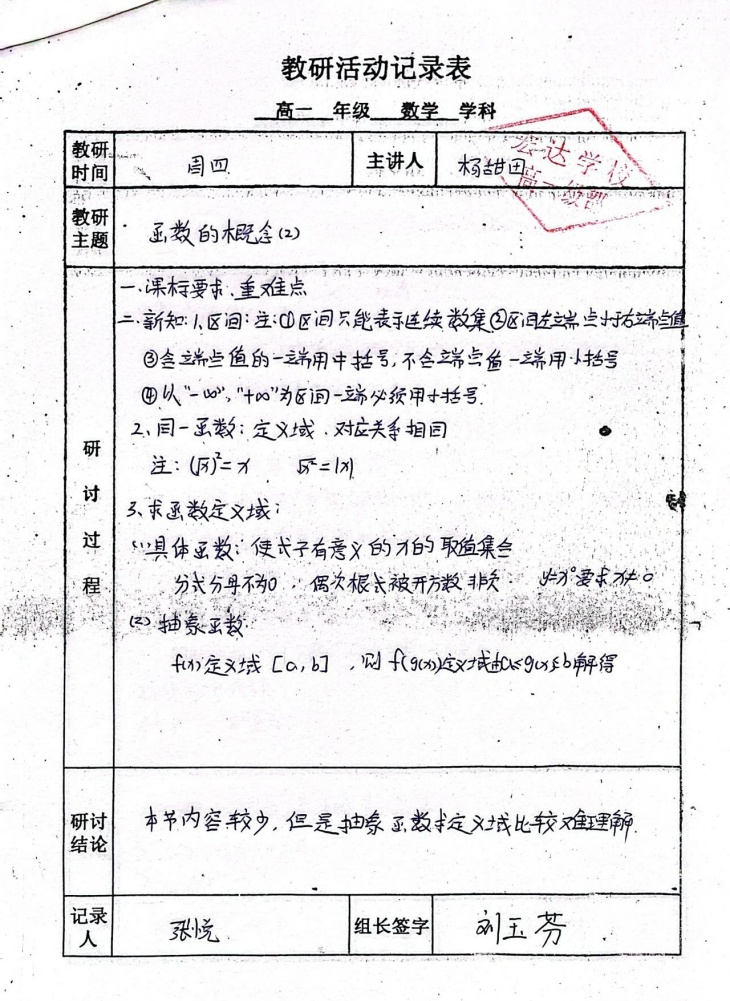 教研活动记录表
高一 年级 数学 学科
教研时间 周四 主讲人 杨甜田
宏达学校
高一级部
教研主题 函数的概念(2)
研讨过程
一、课标要求、重难点
二、新知:1、区间:注:①区间只能表示连续数集②区间左端点小于右端点值
③含端点值的一端用中括号,不含端点值一端用小括号
④以"-∞","+∞"为区间一端必须用小括号.
2、同一函数:定义域、对应关系相同
注:(√x)²=x √x²=|x|
3、求函数定义域:
(1)具体函数:使式子有意义的x的取值集合
分式分母不为0,偶次根式被开方数非负. y=x⁰要求x≠0
(2)抽象函数
f(x)定义域[a,b],则f(g(x))定义域由a≤g(x)≤b解得
研讨结论 本节内容较少,但是抽象函数求定义域比较难理解.
记录人 张悦 组长签字 刘玉芬